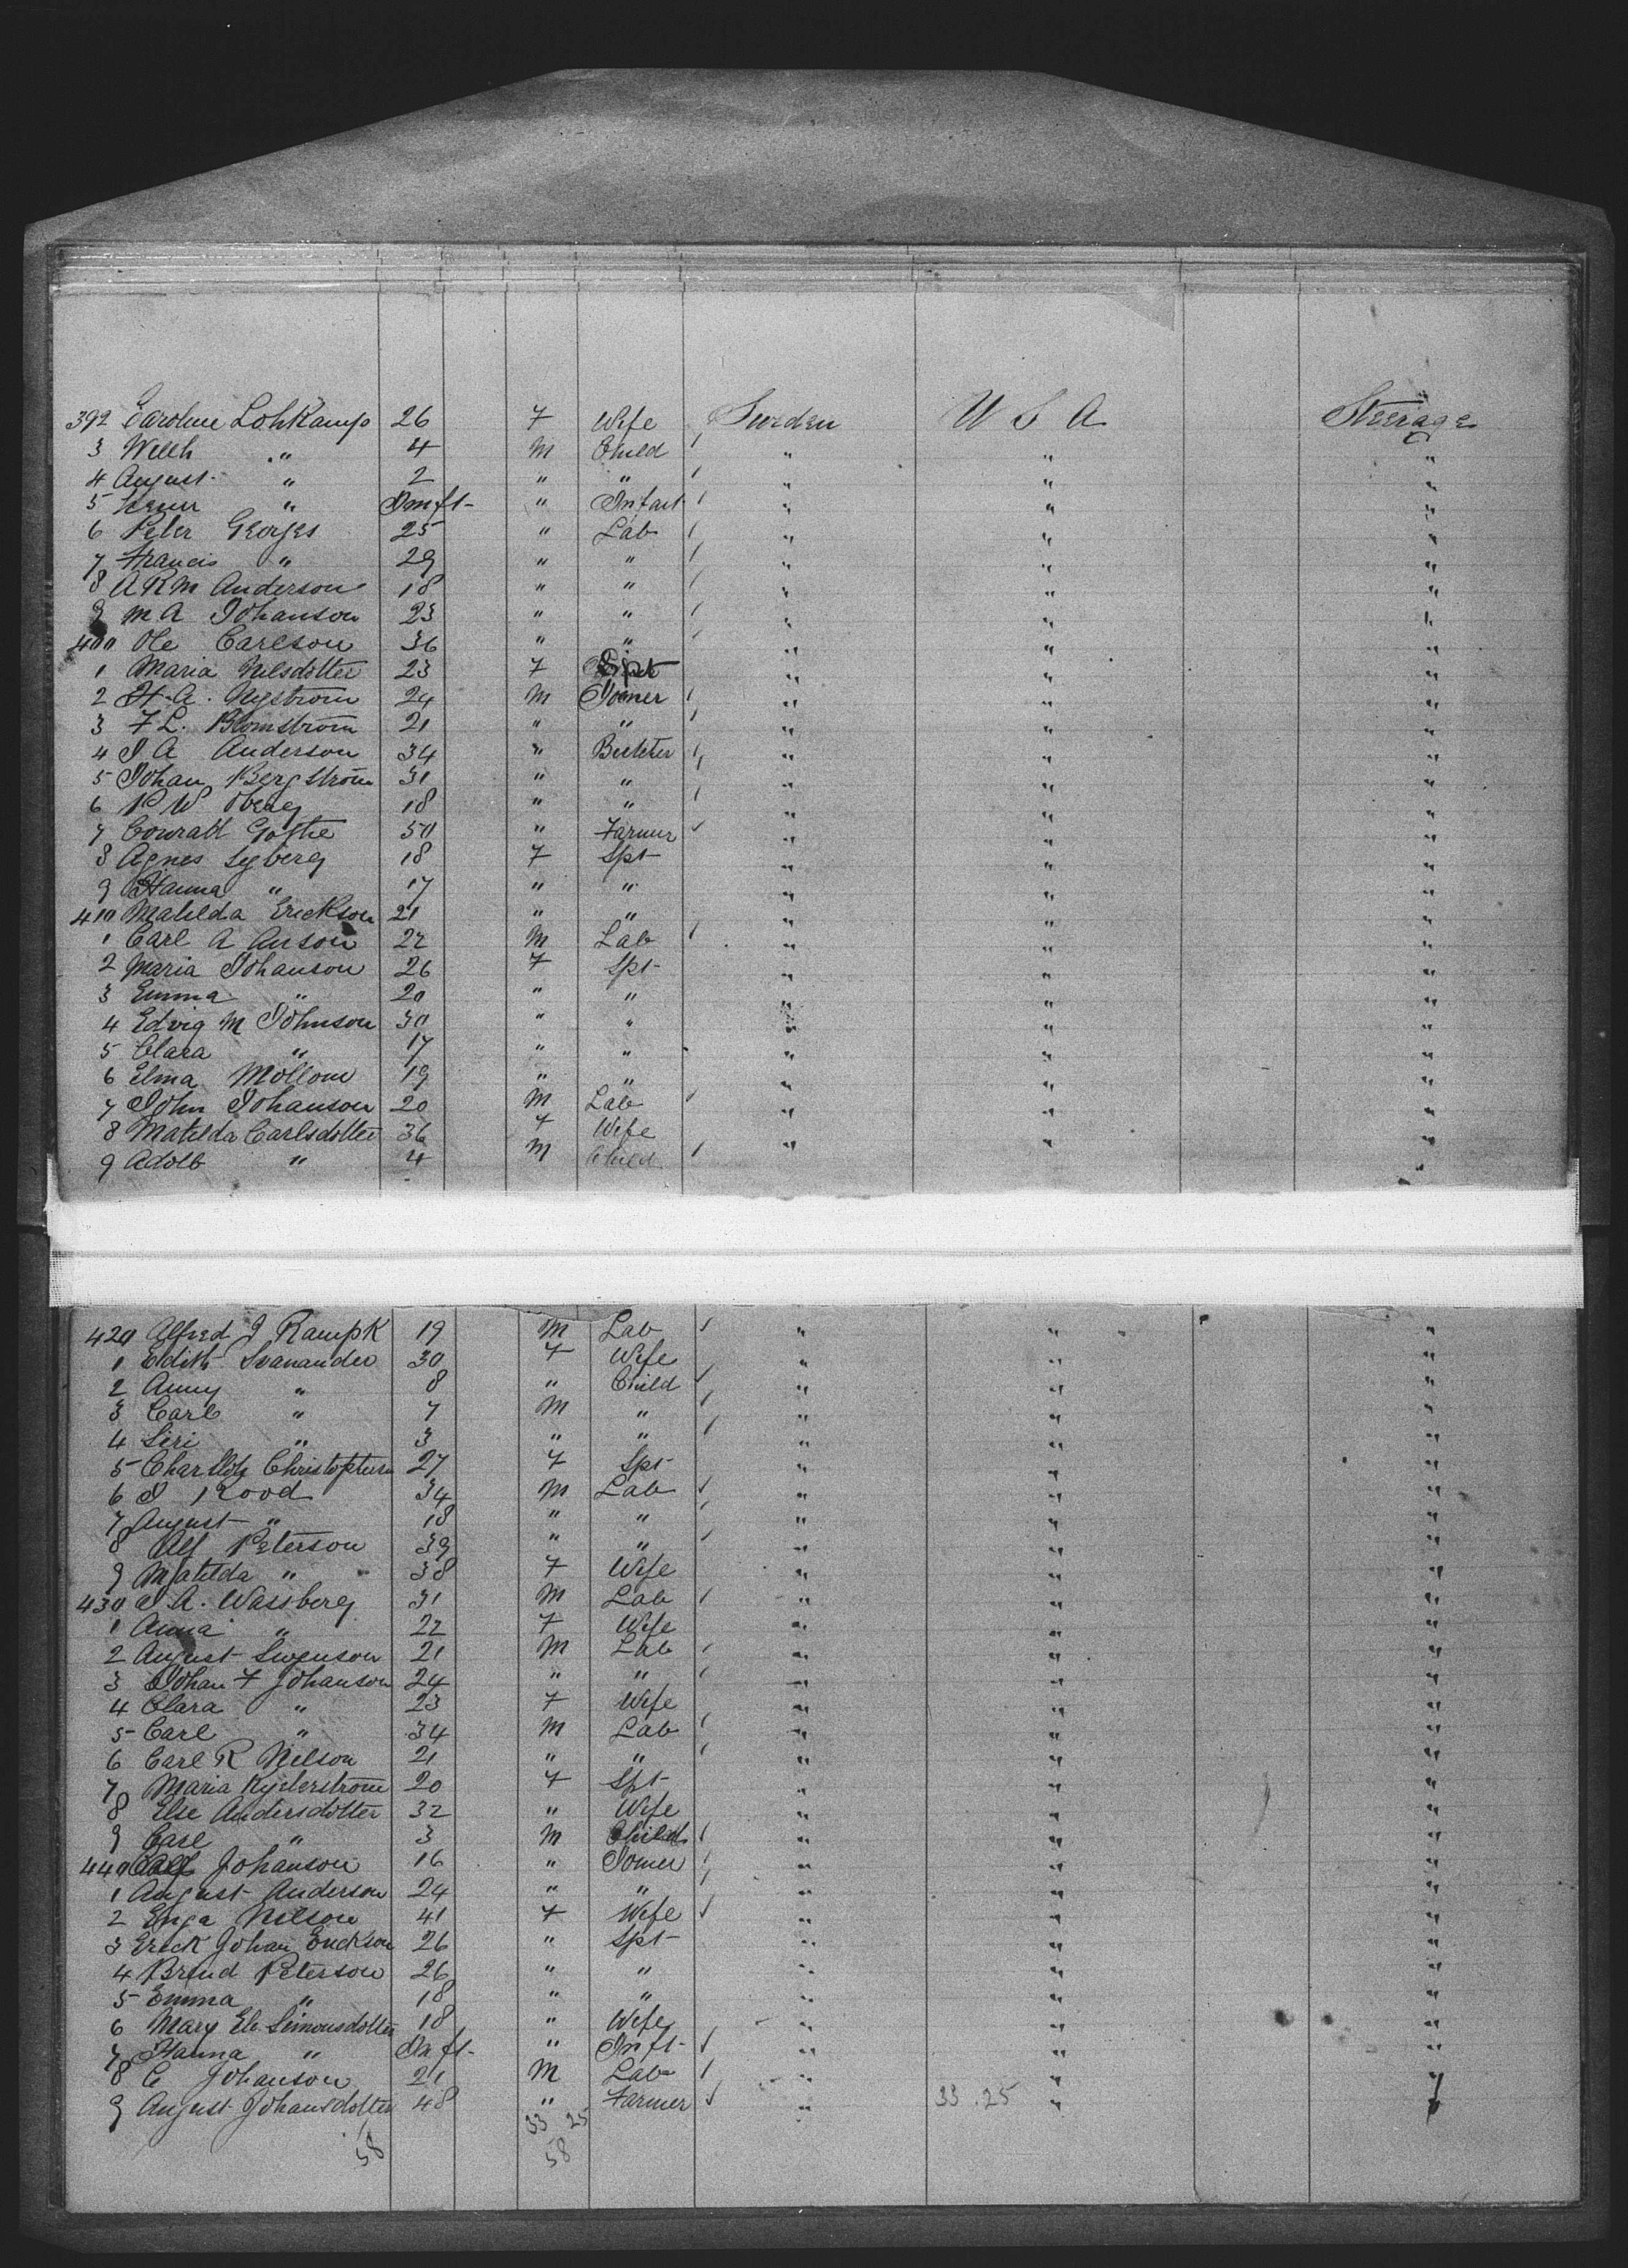 392 Caroline Lohkamp 26 F Wife Sweden U S A Steerage
3 Welch " 4 M Child " " "
4 August " 2 " " " " "
5 " Imft- " Infant " " "
6 Peter Georges 25 " Lab " " "
7 Francis " 29 " " " " "
8 A R M Anderson 18 " " " " "
9 M A Johanson 23 " " " " "
400 Ole Carlson 36 " " " " "
1 Maria Nilsdotter 23 F Spt " " "
2 H. A. Nystrom 24 M Joiner " " "
3 F L. Blomstrom 21 " " " " "
4 J A Anderson 34 " " " "
5 Johan Bergstrom 31 " " " " "
6 P W Oberg 18 " " " " "
7 Conrad 50 " Farmer " " "
8 Agnes Syberg 18 F Spt " " "
9 Hanna " 17 " " " " "
410 Matilda Erickson 21 " " " " "
1 Carl A Anson 22 M Lab " " "
2 Maria Johanson 26 F Spt " " "
3 Emma " 20 " " " " "
4 Edvig M Johnson 30 " " " " "
5 Clara " 17 " " " " "
6 Elma Mollom 19 " " " " "
7 John Johanson 20 M Lab " " "
8 Matilda Carlsdotter 36 F Wife " " "
9 Adolb " 4 M Child
420 Alfred J Rampk 19 M Lab " " "
1 Edith Svanander 30 F Wife " " "
2 Anny " 8 " Child " " "
3 Carl " 7 M " " " "
4 Siri " 3 " " " " "
5 27 F Spt " " "
6 J Rood 34 M Lab " " "
7 August " 18 " " " " "
8 Alf Peterson 39 " " " " "
9 Matilda " 38 F Wife " " "
430 J A. Wassberg 31 M Lab " " "
1 Anna " 22 F Wife " " "
2 August Swenson 21 M Lab " " "
3 Johan F Johanson 24 " " " " "
4 Clara " 23 F Wife " " "
5 Carl " 34 M Lab " " "
6 Carl R Nilson 21 " " " " "
7 Maria Kyderstrom 20 F Spt " " "
8 Else Andersdotter 32 " Wife " " "
9 Carl " 3 M Child " " "
440 Johanson 16 " Joiner " " "
1 August Anderson 24 " " " " "
2 Enga Nelson 41 F Wife " " "
3 Erick Johan Erickson 26 " Spt " " "
4 Peterson 26 " " " " "
5 Emma " 18 " " " " "
6 Mary Eli Simonsdotter 18 " Wife " " "
7 Hanna " Inft- " Inft- " " "
8 C Johanson 21 M Lab " " "
9 August Johansdotter 48 " Farmer " 33.25 "
33 25
58 58